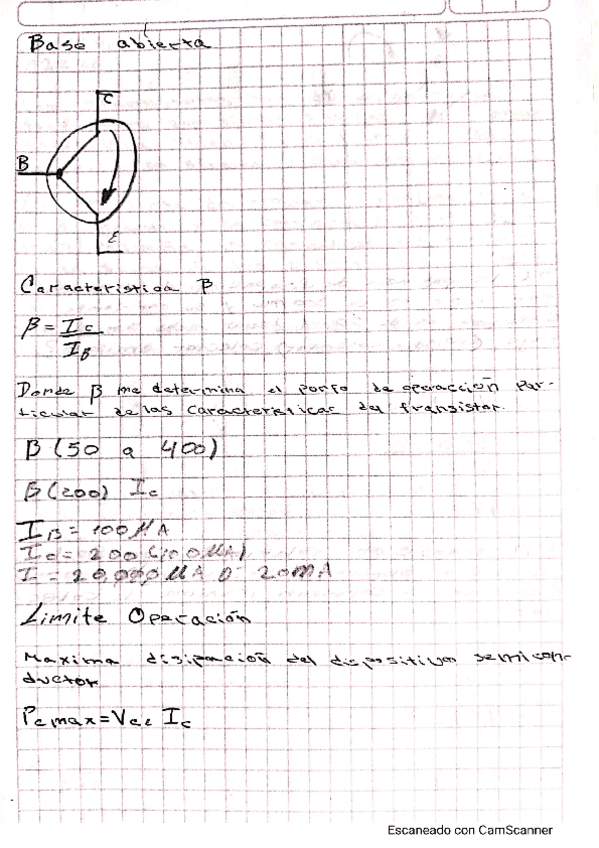 Base abierta
C
B
E
Caracteristica β
β = Ic / IB
Donde β me determina el porfo de operacción par-
ticular de las caracteristicas del transistor.
β (50 a 400)
β (200) Ic
IB = 100 μA
Ic = 200 (100 μA)
I = 20,000 μA o 20mA
Limite Operación
Maxima disipación del dispositivo semicon-
ductor
Pcmax = Vce Ic
Escaneado con CamScanner